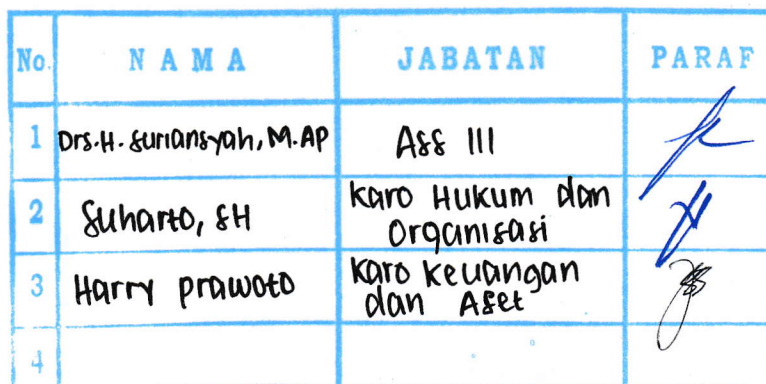 No. NAMA JABATAN PARAF
1 Drs. H. Suriansyah, M.AP Ass III
2 Suharto, SH Karo Hukum dan Organisasi
3 Harry prawoto Karo keuangan dan Aset
4